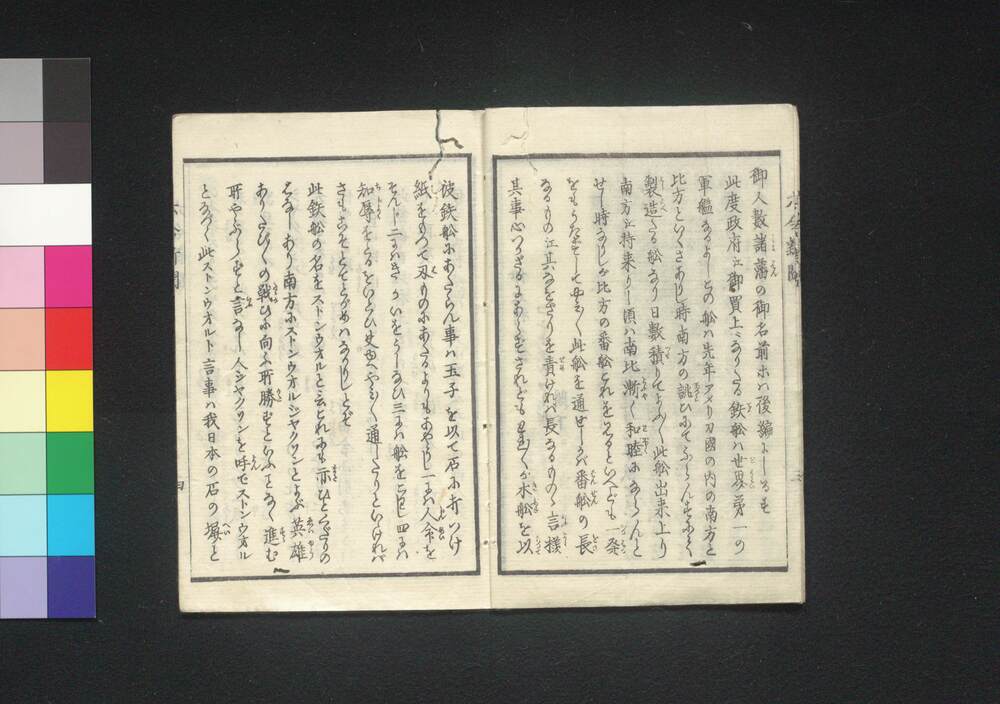 御人数諸藩の御名前ホハ後編にしるす
此度政府江御買上ニなりたる鉄船ハ世界第一の
軍艦なるよしこの船ハ先年アメリカ國の内の南方と
比方といくさありし時南方の誂ひにてふらんすにて
製造たる船なり日数積りてよふ〱此船出来上り
南方江持来りし頃ハ南比漸く和睦にならんと
せし時なりしが比方の番船これを見るといへども一発
をもうたずして此船を通せしかバ番船の長
なるもの江其をこたりを責けれバ長なるもの言様
其事心つかざるにあらずされども木船を以
彼鉄船にあたらん事ハ玉子を以て石に打つけ
紙をもつて刃ものにあたるよりもあやうし一にハ人命を
そんじ二にハ船をこわし四にハ
恥辱をとるをいとひ通したりといけれバ
さもこそとてとがめハなかりしとぞ
此鉄船の名をストンウオルと云これにも亦ひとくだりの
はなしあり南方にストンウオルシヤクソンとよぶ英雄
ありたび〱の戦ひに向ふ所勝ずといふことなく進む
所やぶらずと言なし人シヤクソンを呼でストンウオル
となづく此ストンウオルト言事ハ我日本の石の塀と